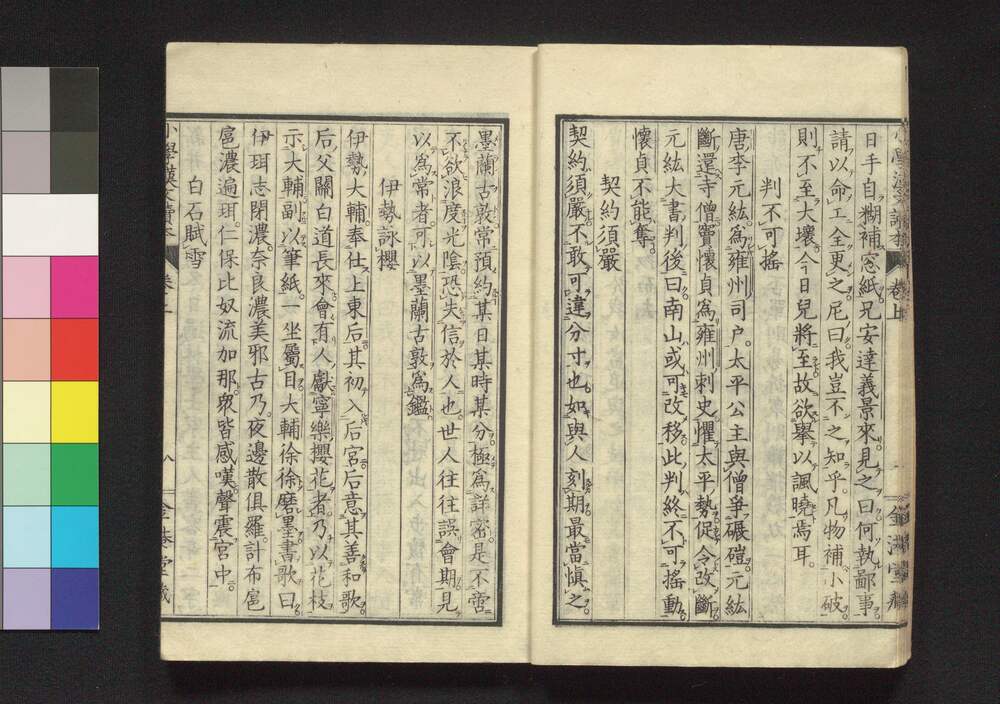 日手自糊補窓紙兄安達義景來見之曰何執鄙事
請以命工全更之尼曰我豈不之知乎凡物補小破
則不至大壞今日兒將至故欲擧以諷曉焉耳
判不可搖
唐李元紘爲雍州司戸太平公主與僧爭碾磑元紘
斷還寺僧竇懷貞爲雍州刺史懼太平勢促令改斷
元紘大書判後曰南山或可改移此判終不可搖動
懷貞不能奪
契約須嚴
契約須嚴不敢可違分寸也如與人刻期最當愼之
墨蘭古敦常預約某日某時某分極爲詳密是不啻
不欲浪度光陰恐失信於人也世人往往誤會期見
以爲常者可以墨蘭古敦爲鑑
伊勢詠櫻
伊勢大輔奉仕上東后其初入后宮后意其善和歌
后父關白道長來會有人獻寧樂櫻花者乃以花枝
示大輔副以筆紙一坐屬目大輔徐徐磨墨書歌曰
伊珥志閉濃奈良濃美邪古乃夜邊散俱羅計布扈
扈濃遍珥仁保比奴流加那衆皆感嘆聲震宮中
白石賦雪
小學漢文讀本